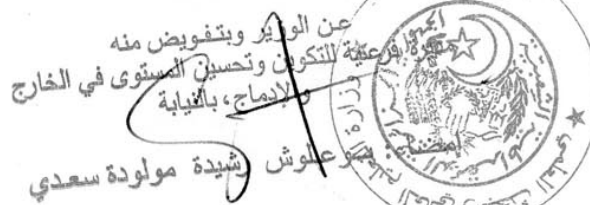 عن الوزير وبتفويض منه
مديرة فرعية للتكوين وتحسين المستوى في الخارج
والإدماج، بالنيابة
إمضاء: بوعلوش رشيدة مولودة سعدي